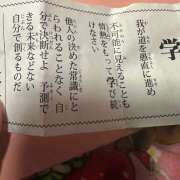 学
我が道を愚直に進め
不可能に見えることも
情熱をもって学び続
けなさい
他人の決めた常識にと
らわれることなく 自
分で決断せよ 予測で
きる未来などない
自分で創るものだ